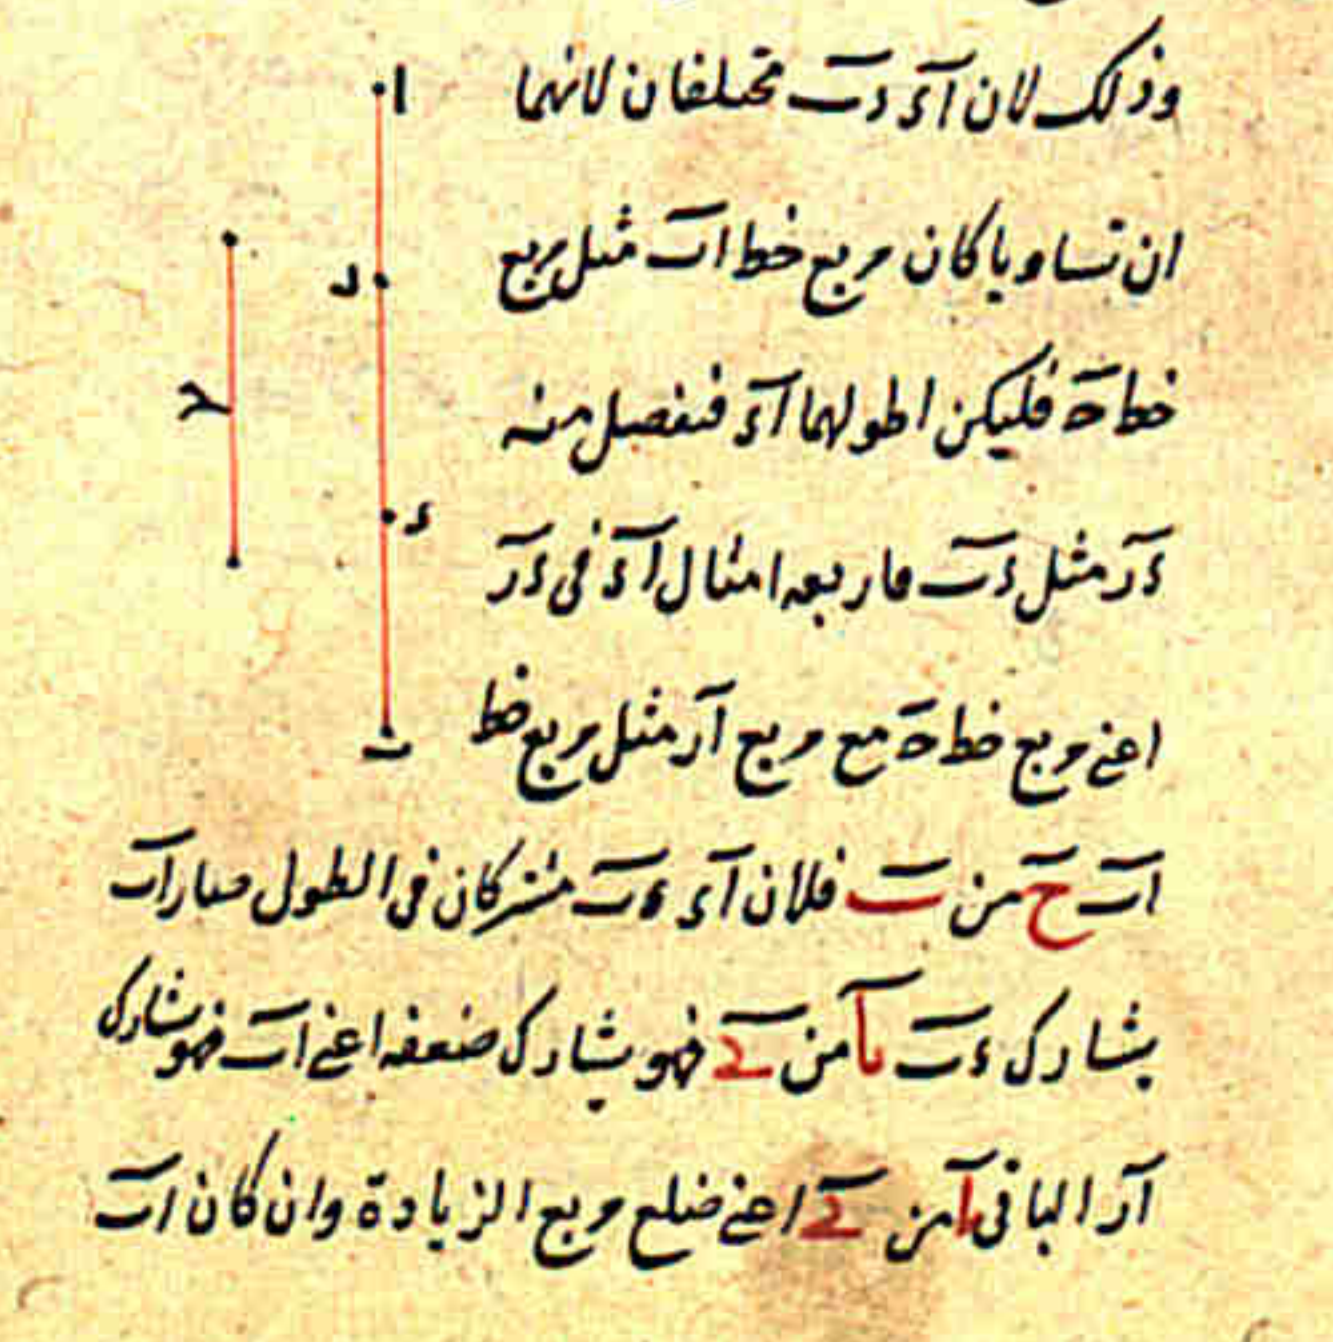 وذلك لان اء دب مختلفان لانهما
ان تساويا كان مربع خط اب مثل مربع
خط ح فليكن اطولهما اء فنفصل منه
ءر مثل ءب فاربعه امثال اء فى ءر
اعنے مربع خط ح مع مربع ار مثل مربع خط
اب ح من ب فلان اء ءب مشتركان فى الطول صار اب
يشارك ءب يا من ے فهو يشارك ضعفه اعنے اب فهو يشارك
ار الباقى يا من ے اعنے ضلع مربع الزيادة وان كان اب
ا
ر
ء
ب
ح